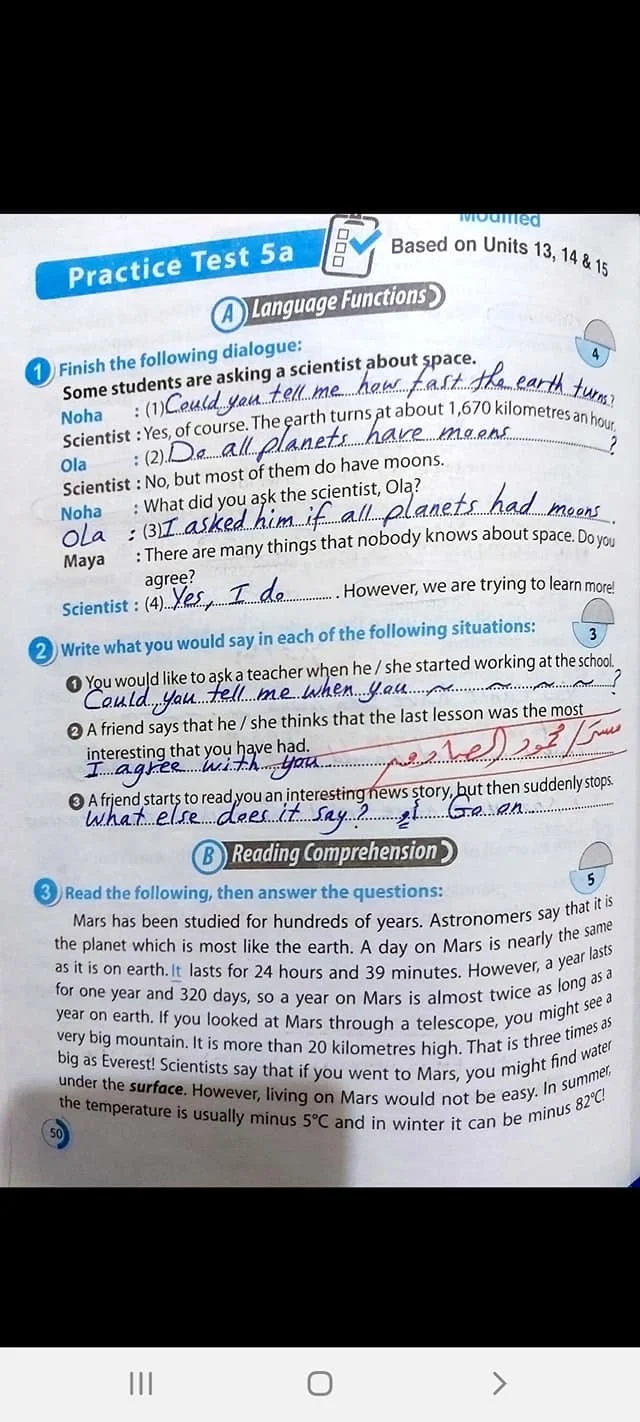 Modified
Practice Test 5a
Based on Units 13, 14 & 15
A Language Functions
1 Finish the following dialogue:
4
Some students are asking a scientist about space.
Noha : (1) Could you tell me how fast the earth turns?
Scientist : Yes, of course. The earth turns at about 1,670 kilometres an hour.
Ola : (2) Do all planets have moons ?
Scientist : No, but most of them do have moons.
Noha : What did you ask the scientist, Ola?
Ola : (3) I asked him if all planets had moons.
Maya : There are many things that nobody knows about space. Do you
agree?
Scientist : (4) Yes, I do . However, we are trying to learn more!
2 Write what you would say in each of the following situations:
3
1 You would like to ask a teacher when he / she started working at the school.
Could you tell me when you ~ ~ ~ ~ ?
2 A friend says that he / she thinks that the last lesson was the most
interesting that you have had.
I agree with you
مستر / محمود
3 A friend starts to read you an interesting news story, but then suddenly stops.
What else does it say? أو Go on
B Reading Comprehension
3 Read the following, then answer the questions:
5
Mars has been studied for hundreds of years. Astronomers say that it is
the planet which is most like the earth. A day on Mars is nearly the same
as it is on earth. It lasts for 24 hours and 39 minutes. However, a year lasts
for one year and 320 days, so a year on Mars is almost twice as long as a
year on earth. If you looked at Mars through a telescope, you might see a
very big mountain. It is more than 20 kilometres high. That is three times as
big as Everest! Scientists say that if you went to Mars, you might find water
under the surface. However, living on Mars would not be easy. In summer,
the temperature is usually minus 5°C and in winter it can be minus 82°C!
50